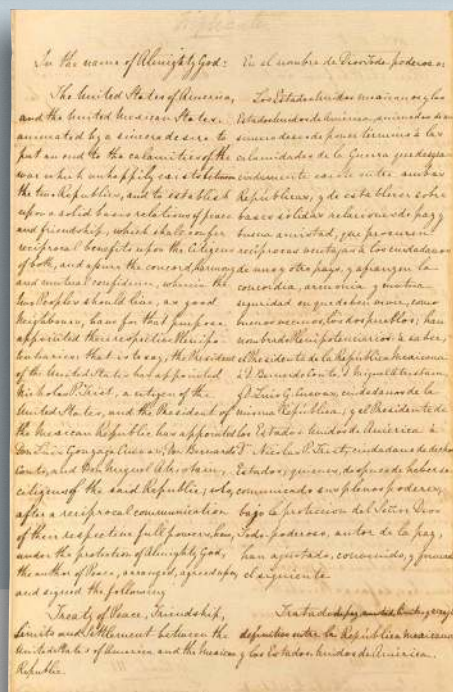 In the name of Almighty God:
The United States of America,
and the United Mexican States,
animated by a sincere desire to
put an end to the calamities of the
war which unhappily exists between
the two Republics, and to establish
upon a solid basis relations of peace
and friendship, which shall confer
reciprocal benefits upon the citizens
of both, and assure the concord, harmony
and mutual confidence, wherein the
two Peoples should live, as good
Neighbours, have for that purpose
appointed their respective Plenipo-
tentiaries: that is to say, the President
of the United States has appointed
Nicholas P. Trist, a citizen of the
United States, and the President of
the Mexican Republic has appointed
Don Luis Gonzaga Cuevas, Don Bernardo
Couto, and Don Miguel Atristain,
citizens of the said Republic; who,
after a reciprocal communication
of their respective full powers, have,
under the protection of Almighty God,
the author of Peace, arranged, agreed upon,
and signed the following
Treaty of Peace, Friendship,
Limits and Settlement between the
United States of America and the Mexican
Republic.
En el nombre de Dios Todo-poderoso:
Los Estados Unidos mexicanos y los
Estados Unidos de América, animados de un
sincero deseo de poner término á las
calamidades de la Guerra que desgra-
ciadamente existe entre ambas
Repúblicas, y de establecer sobre
bases sólidas relaciones de paz y
buena amistad, que procuren
recíprocas ventajas á los ciudadanos
de uno y otro pays, y afianzen la
concordia, armonía y mutua
seguridad en que deben vivir, como
buenos vecinos, los dos pueblos; han
nombrado Plenipotenciarios: á saber,
el Presidente de la República mexicana
á D. Bernardo Couto, D. Miguel Atristain,
y D. Luis G. Cuevas, ciudadanos de la
misma República; y el Presidente de
los Estados Unidos de América á
D. Nicolas P. Trist, ciudadano de dichos
Estados; quienes, despues de haberse
comunicado sus plenos poderes,
bajo la proteccion del Señor Dios
Todo-poderoso, autor de la paz,
han ajustado, convenido, y firmado
el siguiente
Tratado de paz, amistad, límites y arreglo
definitivo entre la República mexicana
y los Estados Unidos de América.